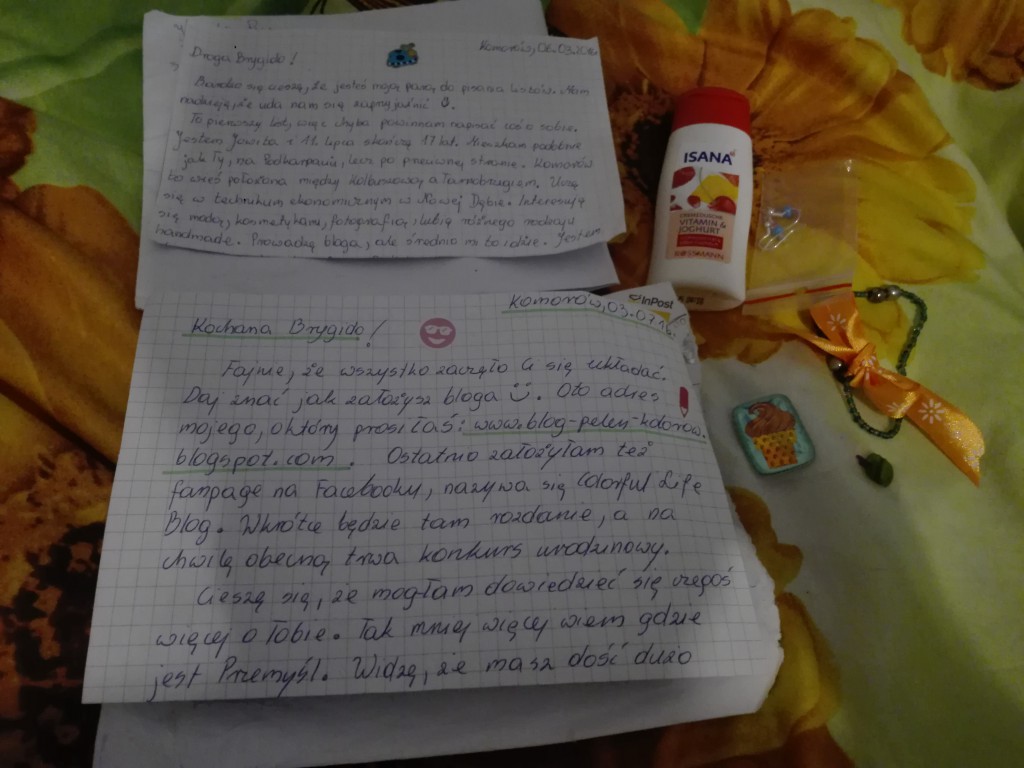 Komorów, 06.03.2016
Droga Brygido!
Bardzo się cieszę, że jesteś moją parą do pisania listów. Mam
nadzieję, że uda nam się zaprzyjaźnić
To pierwszy list, więc chyba powinnam napisać coś o sobie.
Jestem Jowita i 11. lipca skończę 17 lat. Mieszkam podobnie
jak Ty, na Podkarpaciu, lecz po przeciwnej stronie. Komorów
to wieś położona między Kolbuszową a Tarnobrzegiem. Uczę
się w technikum ekonomicznym w Nowej Dębie. Interesuję
się modą, kosmetykami, fotografią, lubię różnego rodzaju
handmade. Prowadzę bloga, ale średnio mi to idzie. Jestem
ISANA
VITAMIN &
JOGHURT
ROSSMANN
InPost
Komorów, 03.07.16r.
Kochana Brygido!
Fajnie, że wszystko zaczęło Ci się układać.
Daj znać jak założysz bloga. Oto adres
mojego, o który prosiłaś: www.blog-pelen-kolorow.
blogspot.com. Ostatnio założyłam też
fanpage na Facebooku, nazywa się Colorful Life
Blog. Wkrótce będzie tam rozdanie, a na
chwilę obecną trwa konkurs urodzinowy.
Cieszę się, że mogłam dowiedzieć się czegoś
więcej o Tobie. Tak mniej więcej wiem gdzie
jest Przemyśl. Widzę, że masz dość dużo